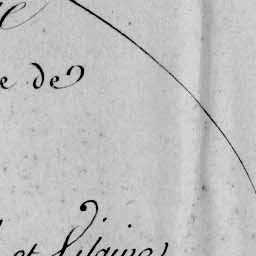 e de
et Vilaine